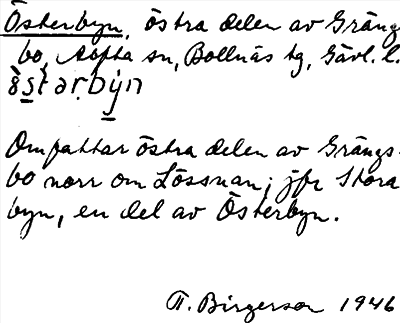 Österbyn, östra delen av Gräng-
bo, Alfta sn, Bollnäs tg, Gävl. l.
Omfattar östra delen av Grängs-
bo norr om Lössnan; jfr Stora
byn, en del av Österbyn.
T. Birgerson 1946